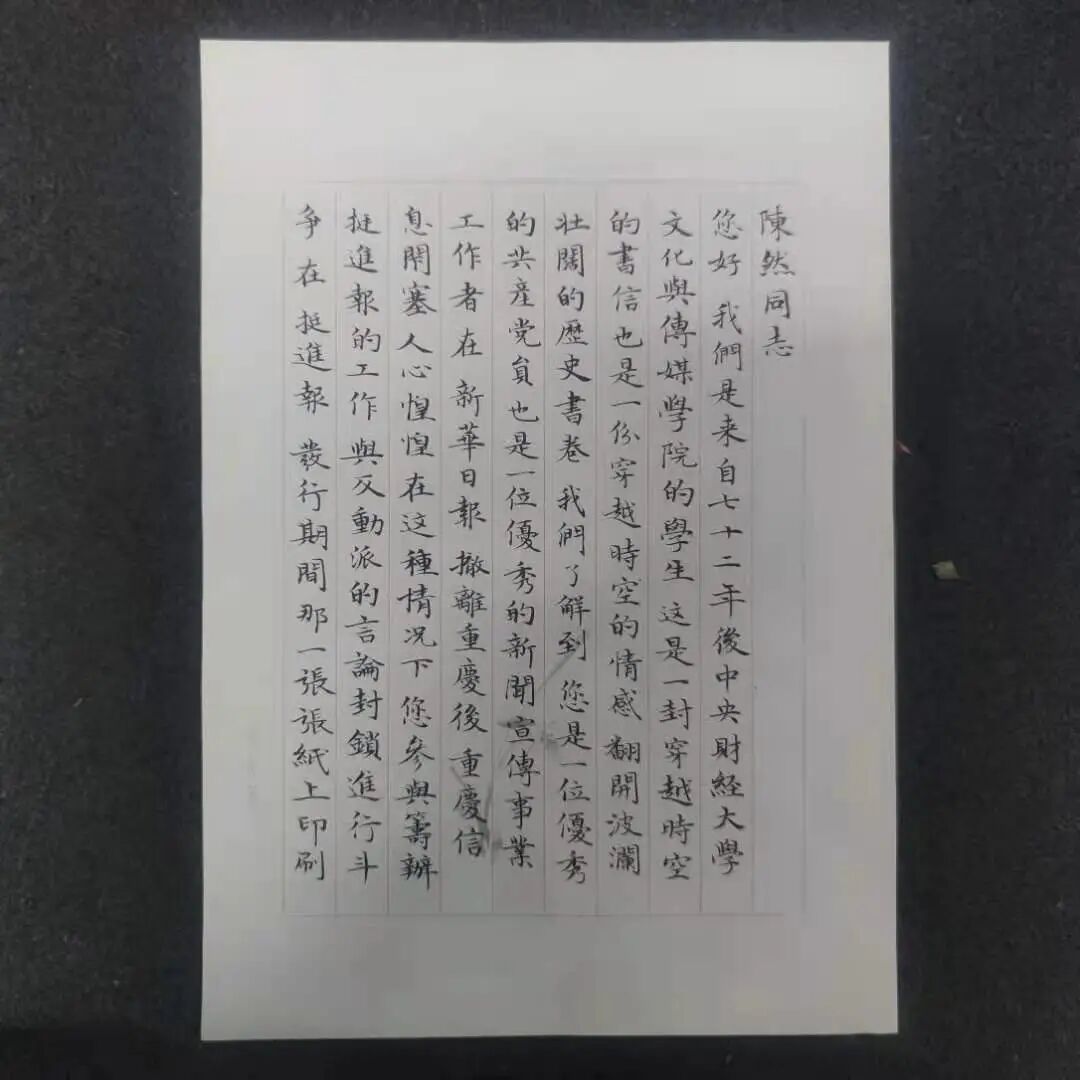 陳然同志
您好 我們是来自七十二年後中央財経大學
文化與傳媒學院的學生 这是一封穿越時空
的書信也是一份穿越時空的情感 翻開波瀾
壮闊的歷史書卷 我們了解到 您是一位優秀
的共産党員也是一位優秀的新聞宣傳事業
工作者 在 新華日報 撤離重慶後 重慶信
息閉塞人心惶惶 在这種情况下 您參與籌辦
挺進報的工作 與反動派的言論封鎖進行斗
争 在 挺進報 發行期間 那一張張紙上印刷